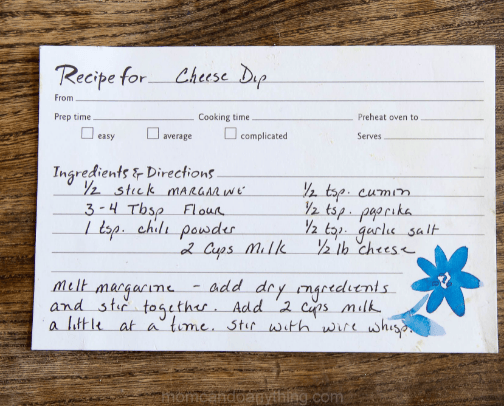 Recipe for Cheese Dip
From
Prep time Cooking time Preheat oven to
easy average complicated Serves
Ingredients & Directions
1/2 stick MARGARINE 1/2 tsp. cumin
3-4 Tbsp Flour 1/2 tsp. paprika
1 tsp. chili powder 1/2 tsp. garlic salt
2 Cups Milk 1/2 lb cheese
Melt margarine - add dry ingredients
and stir together. Add 2 cups milk
a little at a time. Stir with wire whisp.
momcandoanything.com